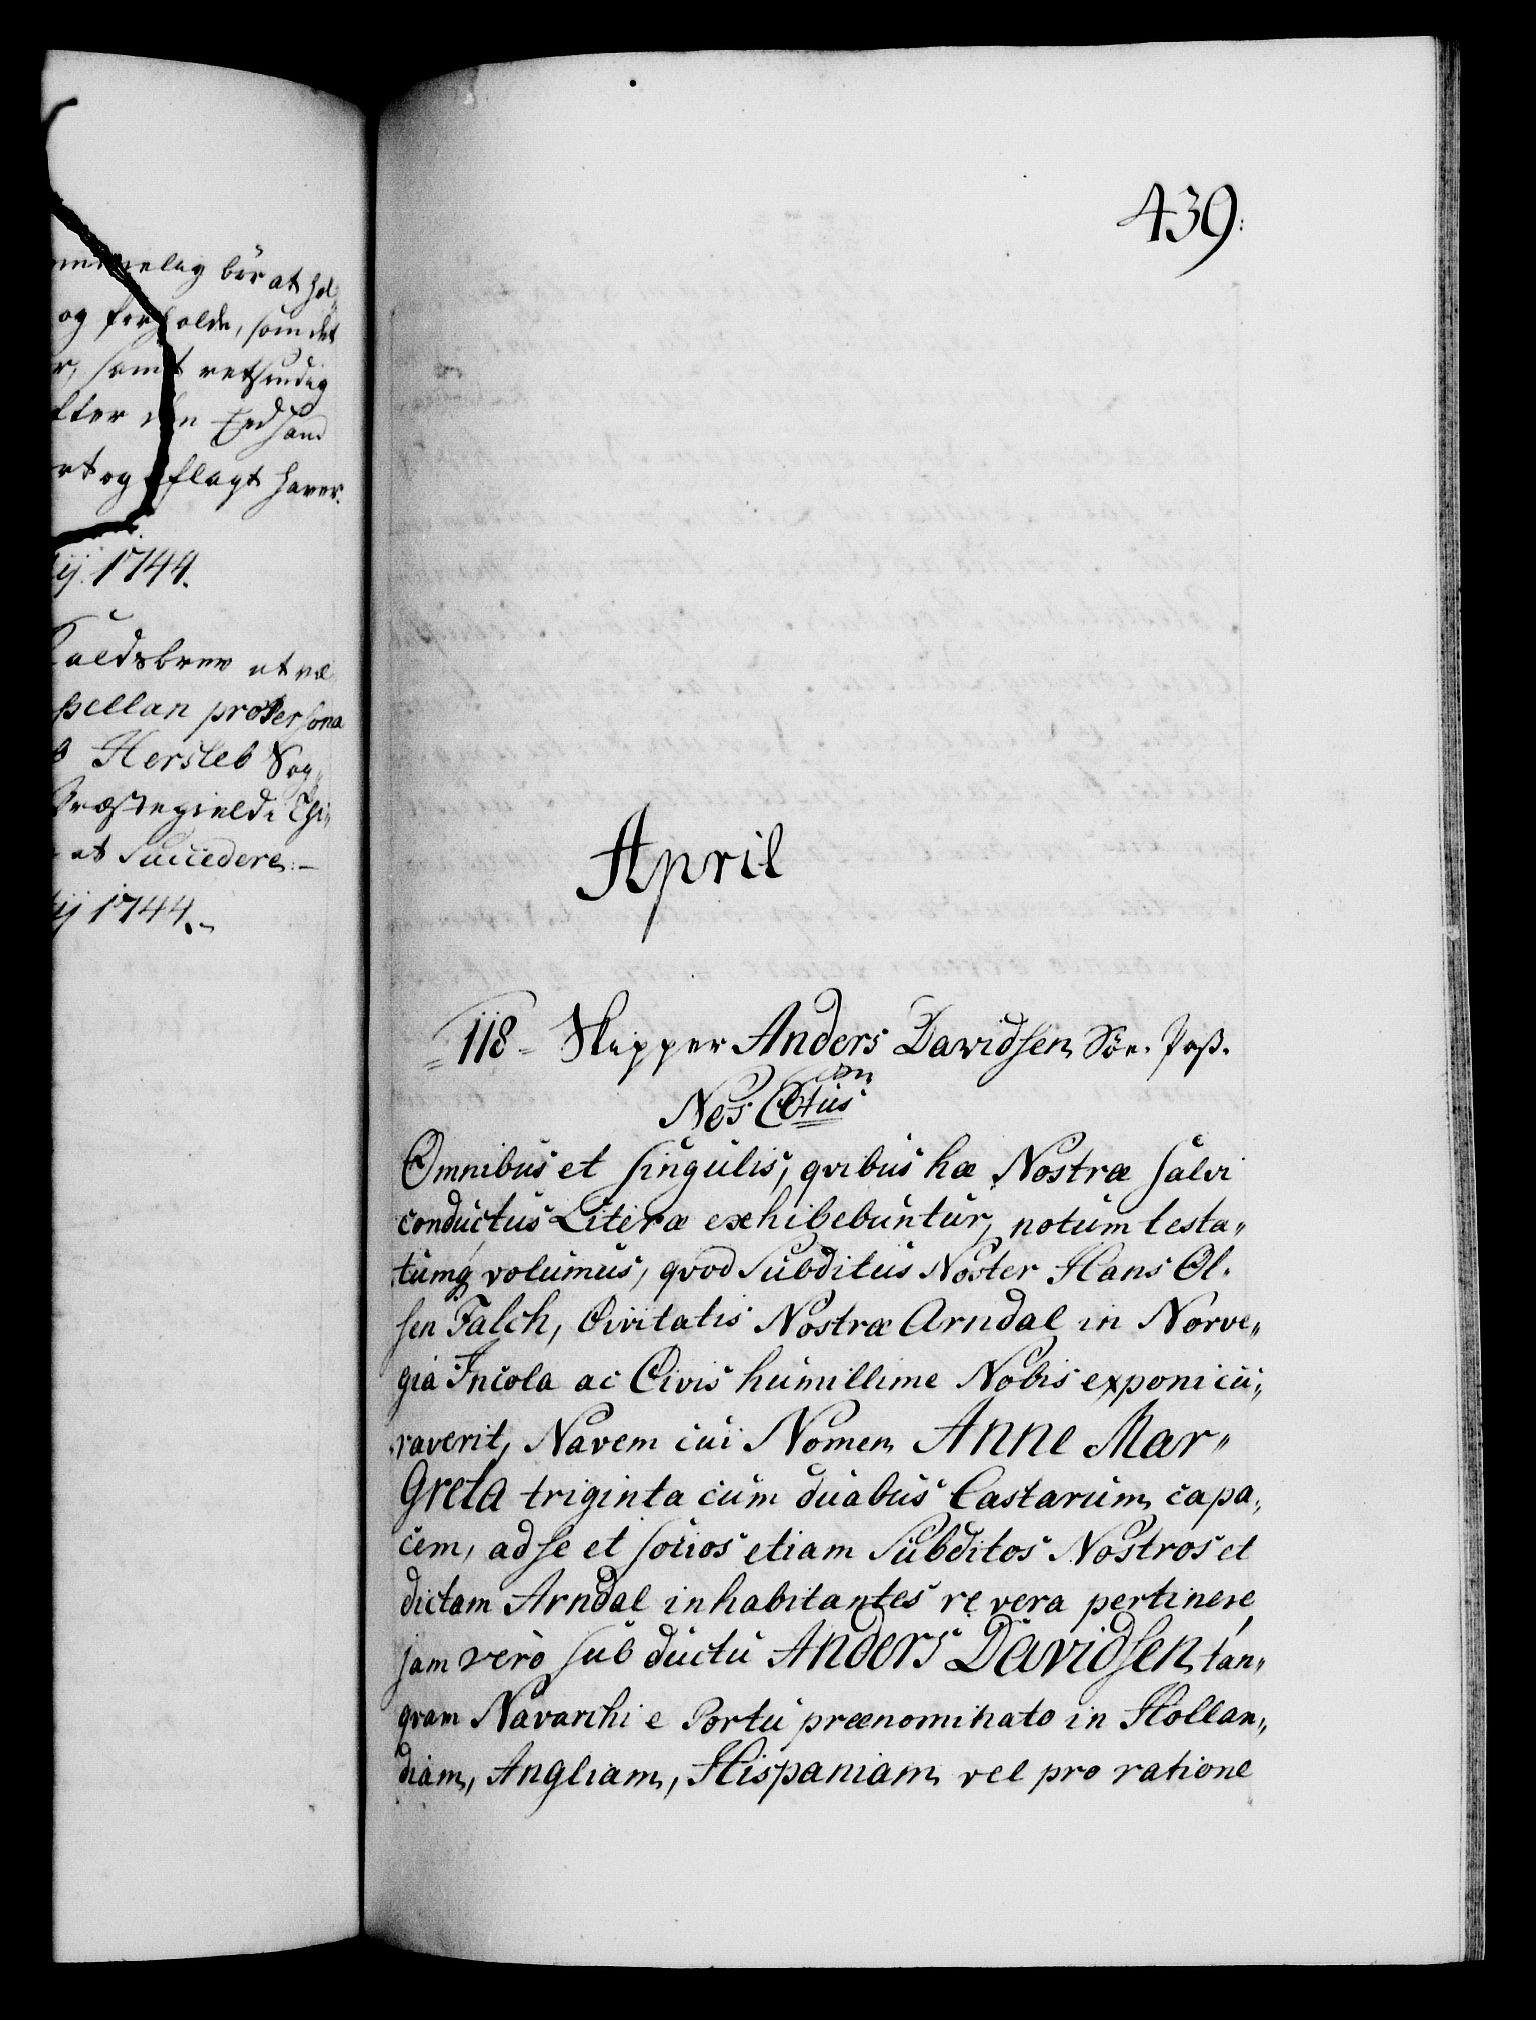 bör at hol„
og forholde, som det
samt retsindig
efter den Eed hand
og aflagt haver.
1744.
Kaldsbrev at væ
pellan pro Persona
Hersleb Sog„
Præstegield i Chri„
at Succedere.–
1744.–
439.
April
118– Skipper Anders Davidsen Söe. Pass.
Nos C 6tus
Omnibus et singulis, qvibus hæ Nostræ salvi
conductus Literæ exhibebuntur, notum testa„
tumq volumus, qvod Subditus Noster Hans Ol„
sen Falch, Civitatis Nostræ Arndal in Norve„
gia Incola ac Civis humillime Nobis exponi cu„
raverit, Navem cui Nomen Anne Mar„
Greta triginta cum duabus Lastarum capa„
cem, ad se et socios etiam Subditos Nostros et
dictam Arndal inhabitantes re vera pertinere,
jam verò sub ductu Anders Davidsen tan„
qvam Navarchi e Portu prænominato in Hollan„
diam, Angliam, Hispaniam vel pro ratione